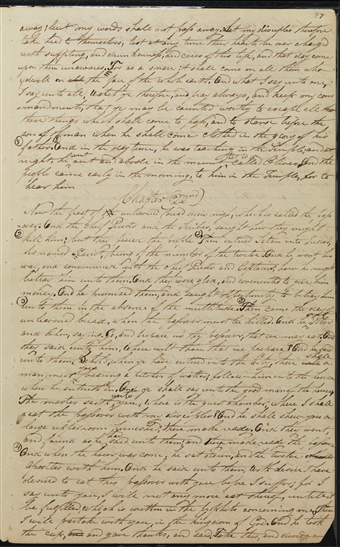 away; but my words shall not pass away. Let my disciples therefore
take heed to themselves, lest at any time their hearts be over charged
with surfeiting, and drunkenness, and cares of this life, and that day come
upon them unawares. For as a snare shall it come on all them who
dwell on the face of the whole earth. And what I say unto one,
I say unto all, Watch ye therefore, and pray always, and keep my com
mandments, that ye may be counted worthy to escape all
these things which shall come to pass, and to stand before the
son of man when he shall come clothed in the glory of his
Father. And in the day time, he was teaching in the Temple; and at
night, he went out and abode in the mount, called Olives. And the
people came early in the morning, to him in the Temple, for to
hear him
Chapter
Now the feast of unleavened bread drew nigh, which is called the pass
over. And the chief Priests and the Scribes, sought how they might
kill him; but they feared the people. Then entered Satan into Judas,
surnamed Iscariot, being of the number of the twelve. And he went his
way, and communed with the chief Priests and Captains, how he might
betray him unto them. And they were glad, and covenanted to give him
money. And he promised them, and sought opportunity to betray him
unto them in the absence of the multitude. Then came the day of
unleavened bread, when the passover must be killed. And he sent Peter
and John, saying, Go, and prepare us the passover, that we may eat. And
they said unto him, Where wilt thou that we prepare? And he said
unto them, Behold, when ye have entered into the city, there shall a
man meet you bearing a pitcher of water; follow him into the house
where he entereth in. And ye shall say unto the good man of the house,
The master saith unto you, Where is the guest chamber, where I shall
eat the passover with my disciples? And he shall shew you a
large upper room furnished; there make ready. And they went,
and found as he had said unto them, and they made ready the passover.
And when the hour was come, he sat down, and the twelve
Apostles with him. And he said unto them, With desire I have
desired to eat this passover with you before I suffer; for I
say unto you, I will not any more eat thereof, until it
be fulfilled which is written in the prophets concerning me. Then
I will partake with you, in the kingdom of God. And he took
the cup, and gave thanks, and said, Take this, and divide